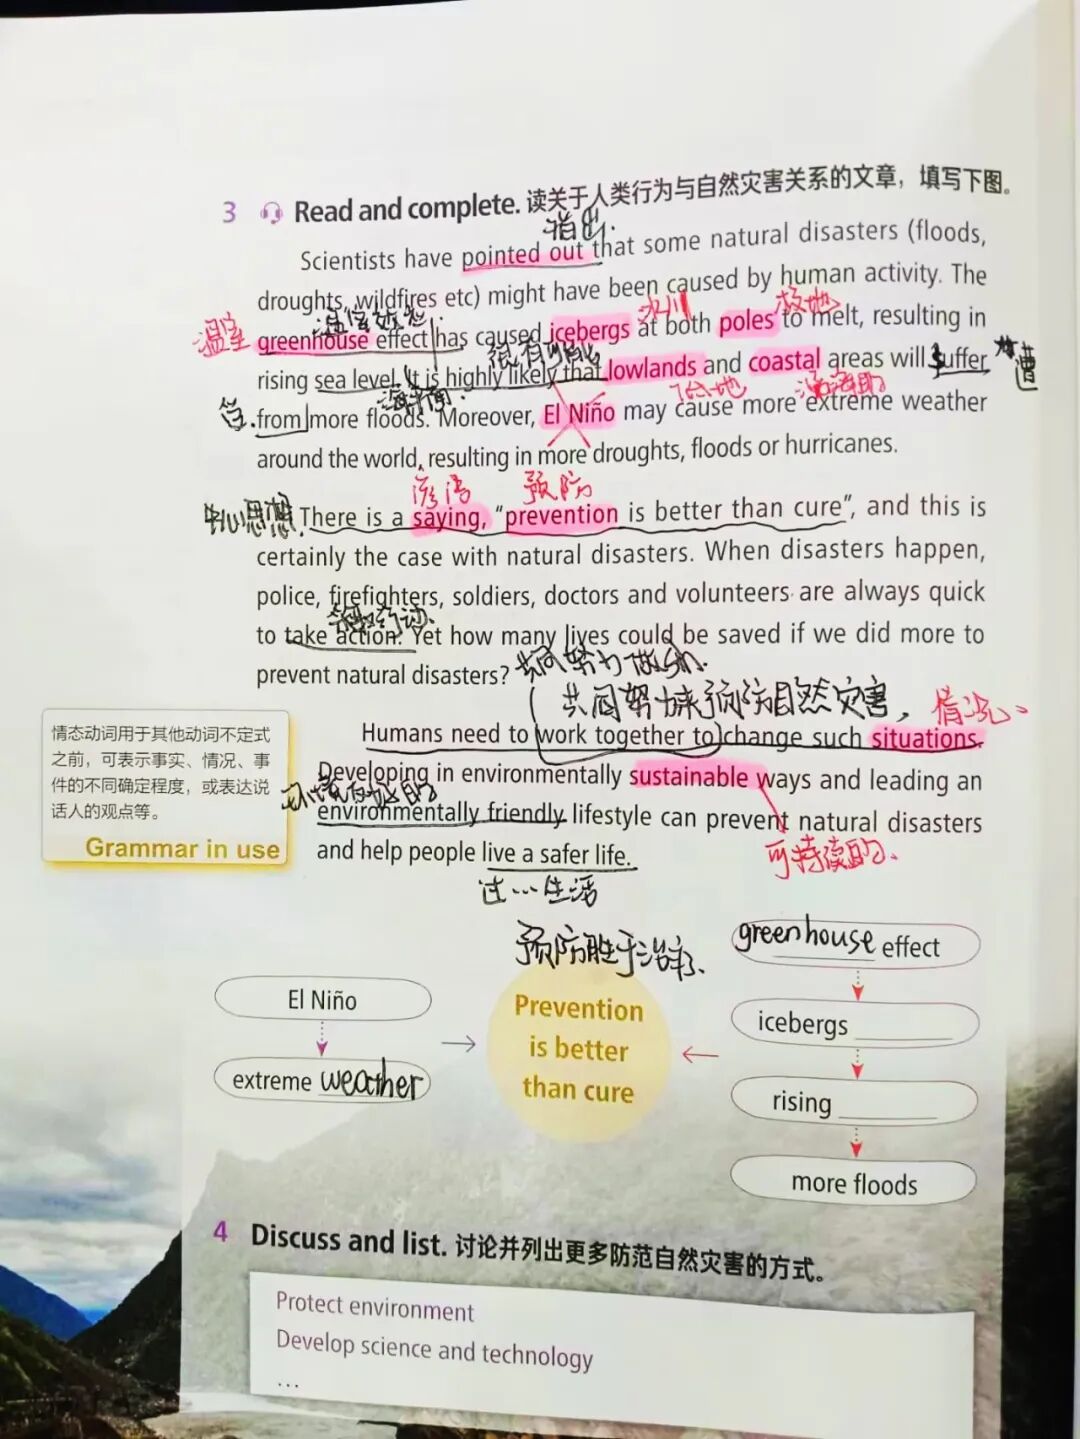 3 Read and complete. 读关于人类行为与自然灾害关系的文章，填写下图。
指出.
Scientists have pointed out that some natural disasters (floods,
droughts, wildfires etc) might have been caused by human activity. The
温室 温室效应 冰川 极地
greenhouse effect has caused icebergs at both poles to melt, resulting in
很有可能
rising sea level. It is highly likely that lowlands and coastal areas will suffer
海平面.
from more floods. Moreover, El Niño may cause more extreme weather
around the world, resulting in more droughts, floods or hurricanes.
谚语 预防
中心思想.
There is a saying, “prevention is better than cure”, and this is
certainly the case with natural disasters. When disasters happen,
police, firefighters, soldiers, doctors and volunteers are always quick
to take action. Yet how many lives could be saved if we did more to
prevent natural disasters?
共同努力来预防自然灾害, 情况、
Humans need to work together to change such situations.
Developing in environmentally sustainable ways and leading an
environmentally friendly lifestyle can prevent natural disasters
可持续的、
and help people live a safer life.
过…生活
情态动词用于其他动词不定式
之前，可表示事实、情况、事
件的不同确定程度，或表达说
话人的观点等。
Grammar in use
预防胜于治疗、
greenhouse effect
El Niño
icebergs
extreme weather
Prevention
is better
than cure
rising
more floods
4 Discuss and list. 讨论并列出更多防范自然灾害的方式。
Protect environment
Develop science and technology
...